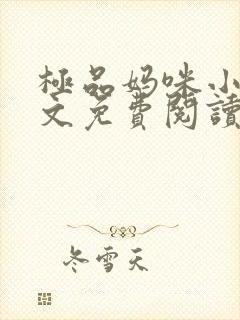 極品妈咪小
文免費閱讀
冬雪天